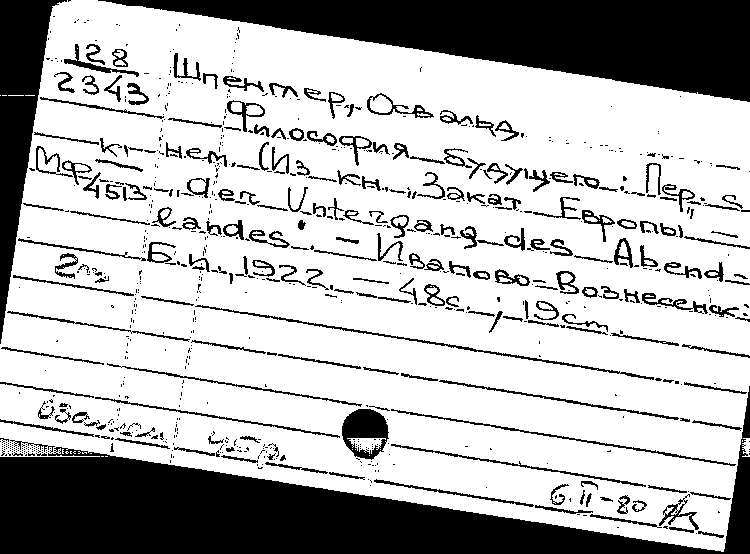 128
2343
Шпенглер, Освальд.
Философия будущего : Пер. с
нем. (Из кн. „Закат Европы" —
К1
Мф/4513
„der Untergang des Abend=
landes". — Иваново-Вознесенск:
Б.и., 1922. — 48с. ; 19см.
2
взамен 45р.
6.II-80